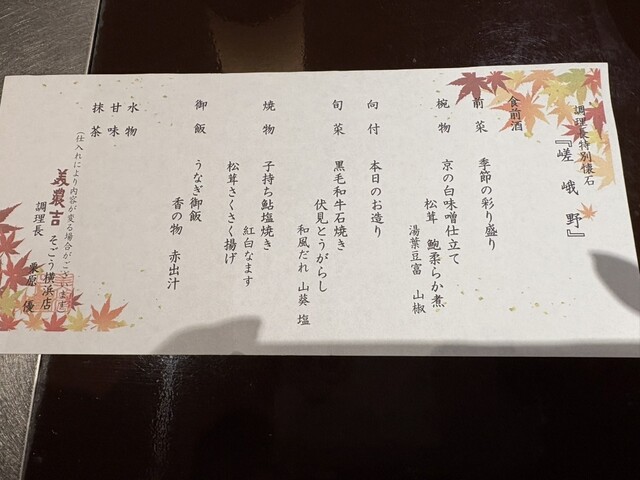 調理長特別懐石
『嵯峨野』
食前酒
前菜 季節の彩り盛り
椀物 京の白味噌仕立て
松茸 鮑柔らか煮
湯葉豆富 山椒
向付 本日のお造り
旬菜 黒毛和牛石焼き
伏見とうがらし
和風だれ 山葵 塩
焼物 子持ち鮎塩焼き
紅白なます
松茸さくさく揚げ
御飯 うなぎ御飯
香の物 赤出汁
水物
甘味
抹茶
(仕入れにより内容が変る場合がございます)
美濃吉 そごう横浜店
調理長 栗原 優